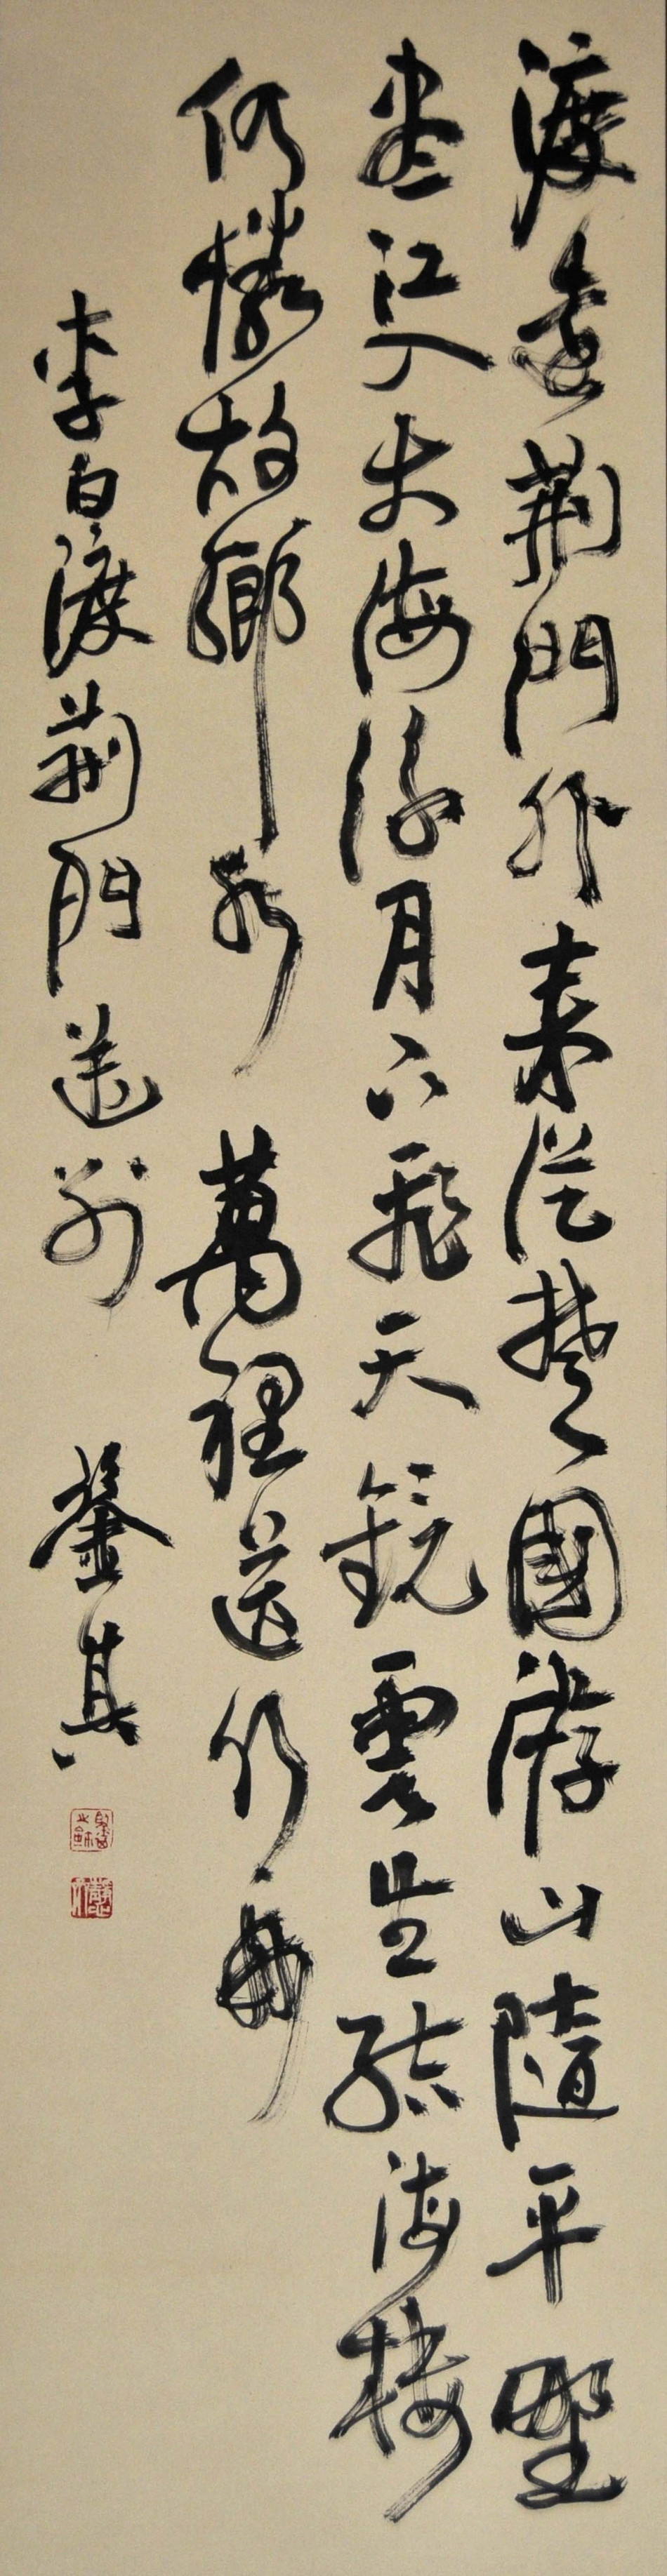 渡遠荊門外来從楚國游山隨平野
盡江入大海流月下飛天鏡雲生結海樓
仍憐故鄉水萬裡送行舟
李白渡荊門送別 其